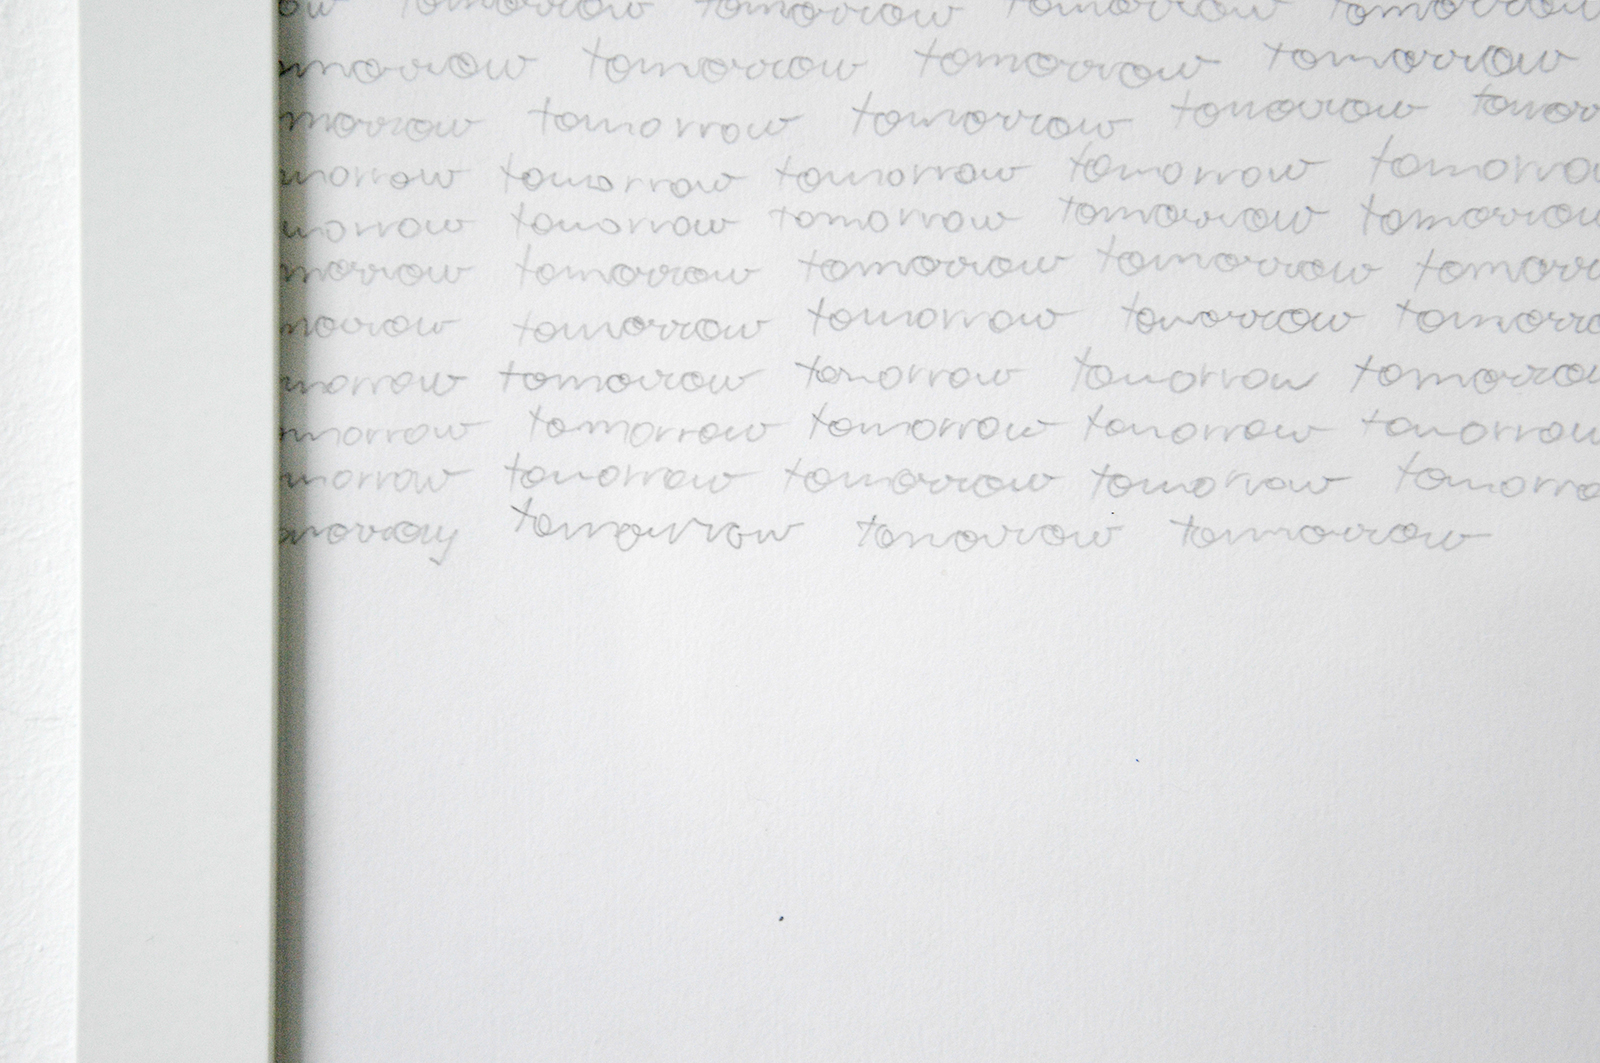 ow tomorrow tomorrow tomorrow tomorrow
morrow tomorrow tomorrow tomorrow
morrow tomorrow tomorrow tomorrow tomorr
morrow tomorrow tomorrow tomorrow tomorro
morrow tomorrow tomorrow tomorrow tomorrow
morrow tomorrow tomorrow tomorrow tomorr
morrow tomorrow tomorrow tomorrow tomorro
morrow tomorrow tomorrow tomorrow tomorrow
morrow tomorrow tomorrow tomorrow tomorrow
morrow tomorrow tomorrow tomorrow tomorro
tomorrow tomorrow tomorrow